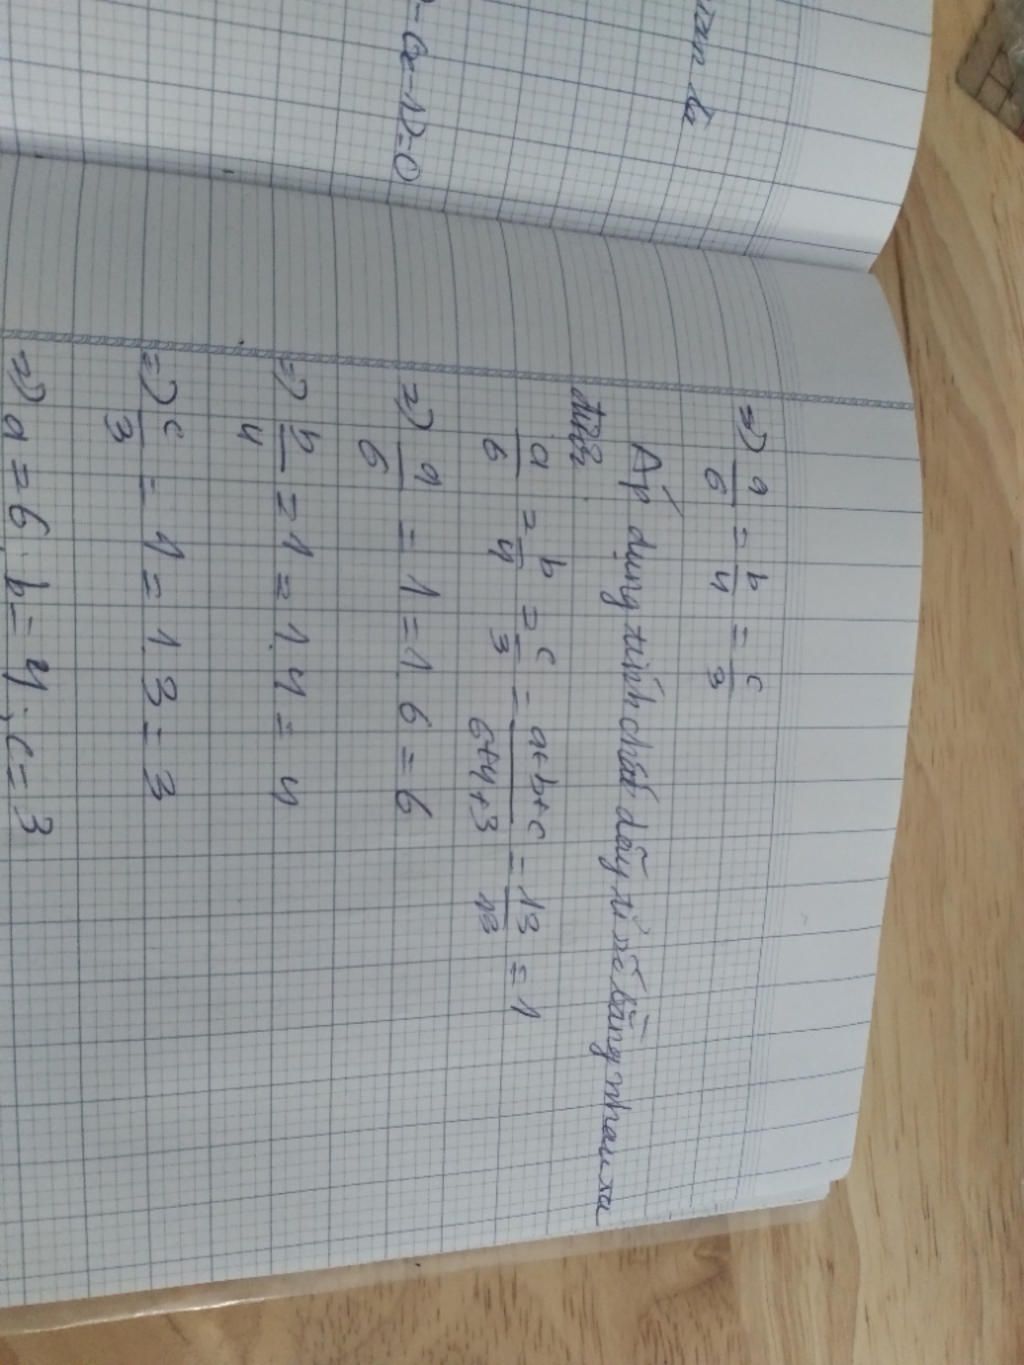 -6x-12=0
=) a/6 = b/4 = c/3
Áp dụng tính chất dãy tỉ số bằng nhau ta
được
a/6 = b/4 = c/3 = a+b+c/6+4+3 = 13/13 = 1
=) a/6 = 1 = 1.6 = 6
=) b/4 = 1 = 1.4 = 4
=) c/3 = 1 = 1.3 = 3
=) a = 6; b = 4; c = 3